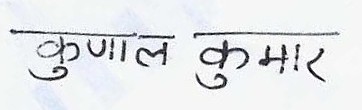 कुणाल कुमार